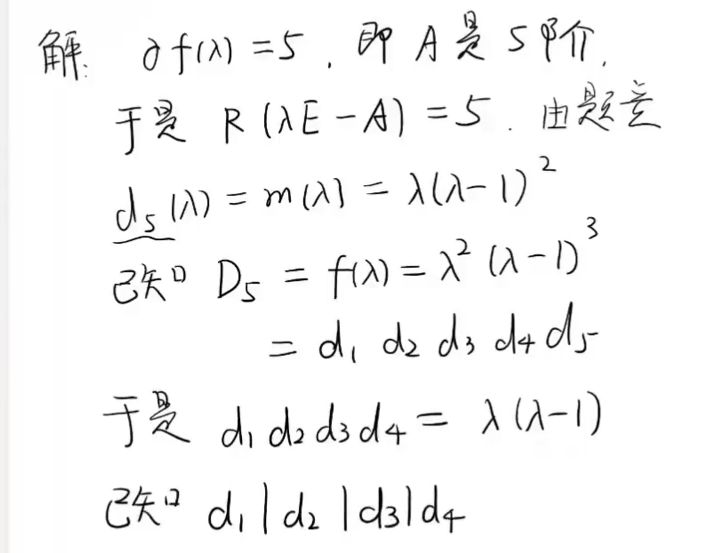 解: ∂f(λ)=5, 即 A是 5阶,
于是 R(λE-A)=5. 由题意
d₅(λ)=m(λ)=λ(λ-1)²
已知 D₅=f(λ)=λ²(λ-1)³
=d₁ d₂ d₃ d₄ d₅
于是 d₁d₂d₃d₄=λ(λ-1)
已知 d₁|d₂|d₃|d₄